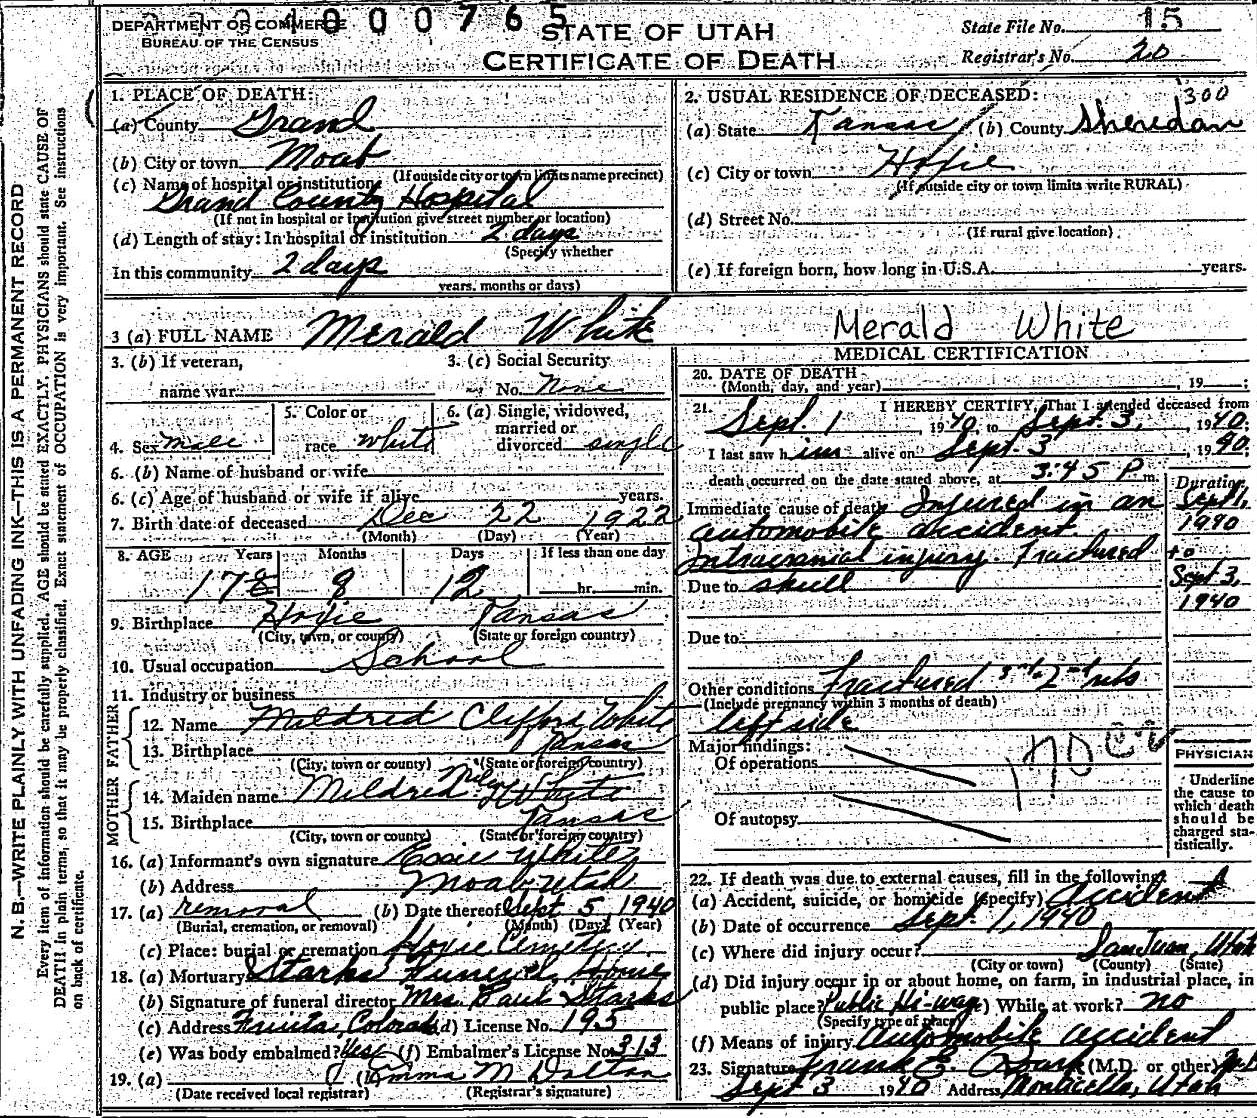 N.B.—WRITE PLAINLY WITH UNFADING INK—THIS IS A PERMANENT RECORD
Every item of information should be carefully supplied. AGE should be stated EXACTLY. PHYSICIANS should state CAUSE OF
DEATH in plain terms, so that it may be properly classified. Exact statement of OCCUPATION is very important. See instructions
on back of certificate.
DEPARTMENT OF COMMERCE
BUREAU OF THE CENSUS
4000765
STATE OF UTAH
CERTIFICATE OF DEATH
State File No. 15
Registrar's No. 20
1. PLACE OF DEATH:
(a) County Grand
(b) City or town Moab
(If outside city or town limits name precinct)
(c) Name of hospital or institution
Grand County Hospital
(If not in hospital or institution give street number or location)
(d) Length of stay: In hospital or institution 2 days
(Specify whether
In this community 2 days
years, months or days)
2. USUAL RESIDENCE OF DECEASED: 300
(a) State Kansas (b) County Sheredan
(c) City or town Hoxie
(If outside city or town limits write RURAL)
(d) Street No.
(If rural give location)
(e) If foreign born, how long in U.S.A. years.
3 (a) FULL NAME Merald White Merald White
3. (b) If veteran,
name war
3. (c) Social Security
No. None
4. Sex male
5. Color or
race white
6. (a) Single, widowed,
married or
divorced single
6. (b) Name of husband or wife
6. (c) Age of husband or wife if alive years.
7. Birth date of deceased Dec 22 1922
(Month) (Day) (Year)
8. AGE Years Months Days If less than one day
17 8 12 hr. min.
9. Birthplace Hoxie Kansas
(City, town, or county) (State or foreign country)
10. Usual occupation School
11. Industry or business
FATHER
12. Name Mildred Clifford White
13. Birthplace Kansas
(City, town or county) (State or foreign country)
MOTHER
14. Maiden name Mildred White
15. Birthplace Kansas
(City, town or county) (State or foreign country)
16. (a) Informant's own signature Essie White
(b) Address Moab, Utah
17. (a) removal (b) Date thereof Sept 5 1940
(Burial, cremation, or removal) (Month) (Day) (Year)
(c) Place: burial or cremation Hoxie Cemetery
18. (a) Mortuary Starks Funeral Home
(b) Signature of funeral director Mrs. Paul Starks
(c) Address Fruita, Colorado (d) License No. 195
(e) Was body embalmed? yes (f) Embalmer's License No. 313
19. (a) (b) Emma M Dalton
(Date received local registrar) (Registrar's signature)
MEDICAL CERTIFICATION
20. DATE OF DEATH
(Month, day, and year) , 19 ;
21. I HEREBY CERTIFY, That I attended deceased from
Sept. 1 , 1940, to Sept. 3, , 1940;
I last saw him alive on Sept. 3 1940;
death occurred on the date stated above, at 3:45 P. m.
Immediate cause of death Injured in an
automobile accident.
Intracranial injury. Fractured
Due to skull
Duration
Sept 1,
1940
to
Sept 3,
1940
Due to
Other conditions Fractured ribs
(Include pregnancy within 3 months of death)
left side
Major findings:
Of operations
Of autopsy
PHYSICIAN
Underline
the cause to
which death
should be
charged sta-
tistically.
22. If death was due to external causes, fill in the following:
(a) Accident, suicide, or homicide (specify) Accident
(b) Date of occurrence Sept. 1, 1940
(c) Where did injury occur? San Juan, Utah
(City or town) (County) (State)
(d) Did injury occur in or about home, on farm, in industrial place, in
public place? Public Hi-way (e) While at work? no
(Specify type of place)
(f) Means of injury Automobile accident
23. Signature Frank E. (M.D. or other) M.D.
Sept 3 1940 Address Monticello, Utah